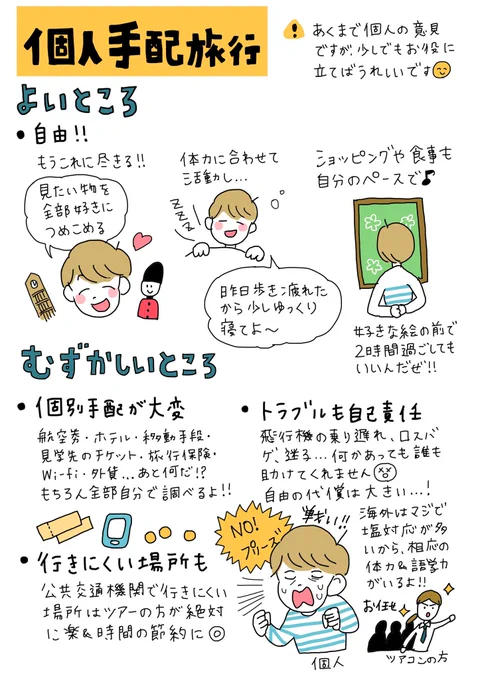 個人手配旅行
あくまで個人の意見
ですが、少しでもお役に
立てばうれしいです
よいところ
• 自由!!
もうこれに尽きる!!
見たい物を
全部好きに
つめこめる
体力に合わせて
活動し...
ZZZ
昨日歩き疲れた
から少しゆっくり
寝てよ〜
ショッピングや食事も
自分のペースで♪
好きな絵の前で
2時間過ごしても
いいんだぜ!!
むずかしいところ
• 個別手配が大変
航空券・ホテル・移動手段・
見学先のチケット・旅行保険・
Wi-fi・外貨...あと何だ!?
もちろん全部自分で調べるよ!!
• 行きにくい場所も
公共交通機関で行きにくい
場所はツアーの方が絶対
に楽&時間の節約に◎
• トラブルも自己責任
飛行機の乗り遅れ、ロスバ
ゲ、迷子...何かあっても誰も
助けてくれません
自由の代償は大きい...!
NO!
プリーズ!
海外はマジで
塩対応が多
いから、相応の
体力&語学力
がいるよ!!
個人
お任せ
ツアコンの方